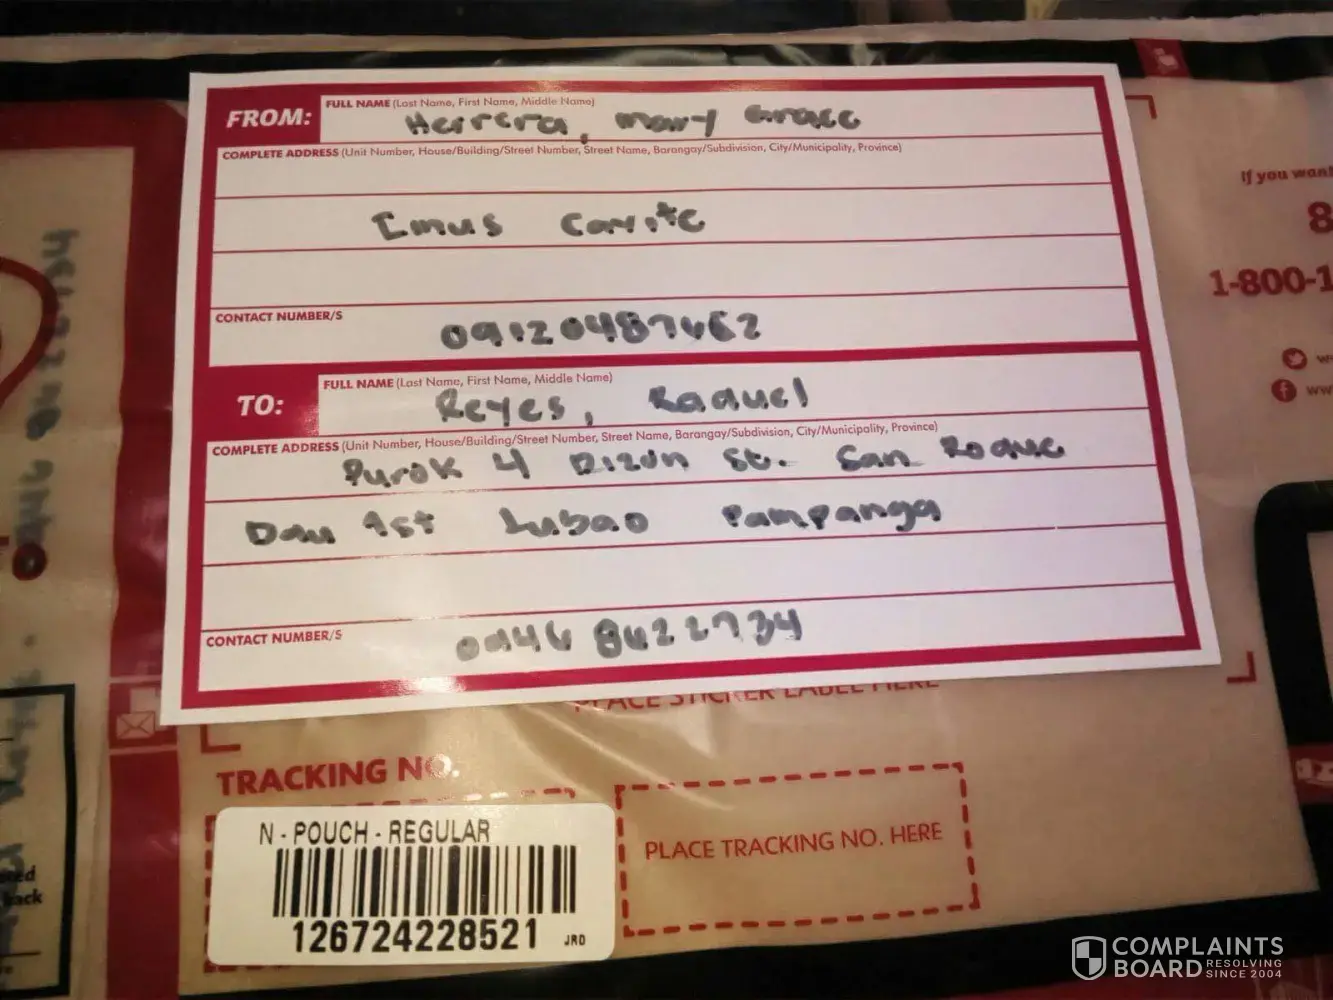 FROM:
FULL NAME (Last Name, First Name, Middle Name)
Herrera, Mary Grace
COMPLETE ADDRESS (Unit Number, House/Building/Street Number, Street Name, Barangay/Subdivision, City/Municipality, Province)
Imus Cavite
CONTACT NUMBER/S
09120487462
TO:
FULL NAME (Last Name, First Name, Middle Name)
Reyes, Raquel
COMPLETE ADDRESS (Unit Number, House/Building/Street Number, Street Name, Barangay/Subdivision, City/Municipality, Province)
Purok 4 Dizon St. San Roque
Dau 1st Lubao Pampanga
CONTACT NUMBER/S
0946 8422734
PLACE STICKER LABEL HERE
TRACKING NO.
N - POUCH - REGULAR
126724228521 JRD
PLACE TRACKING NO. HERE
If you want
8
1-800-1
back
COMPLAINTS
BOARD RESOLVING
SINCE 2004